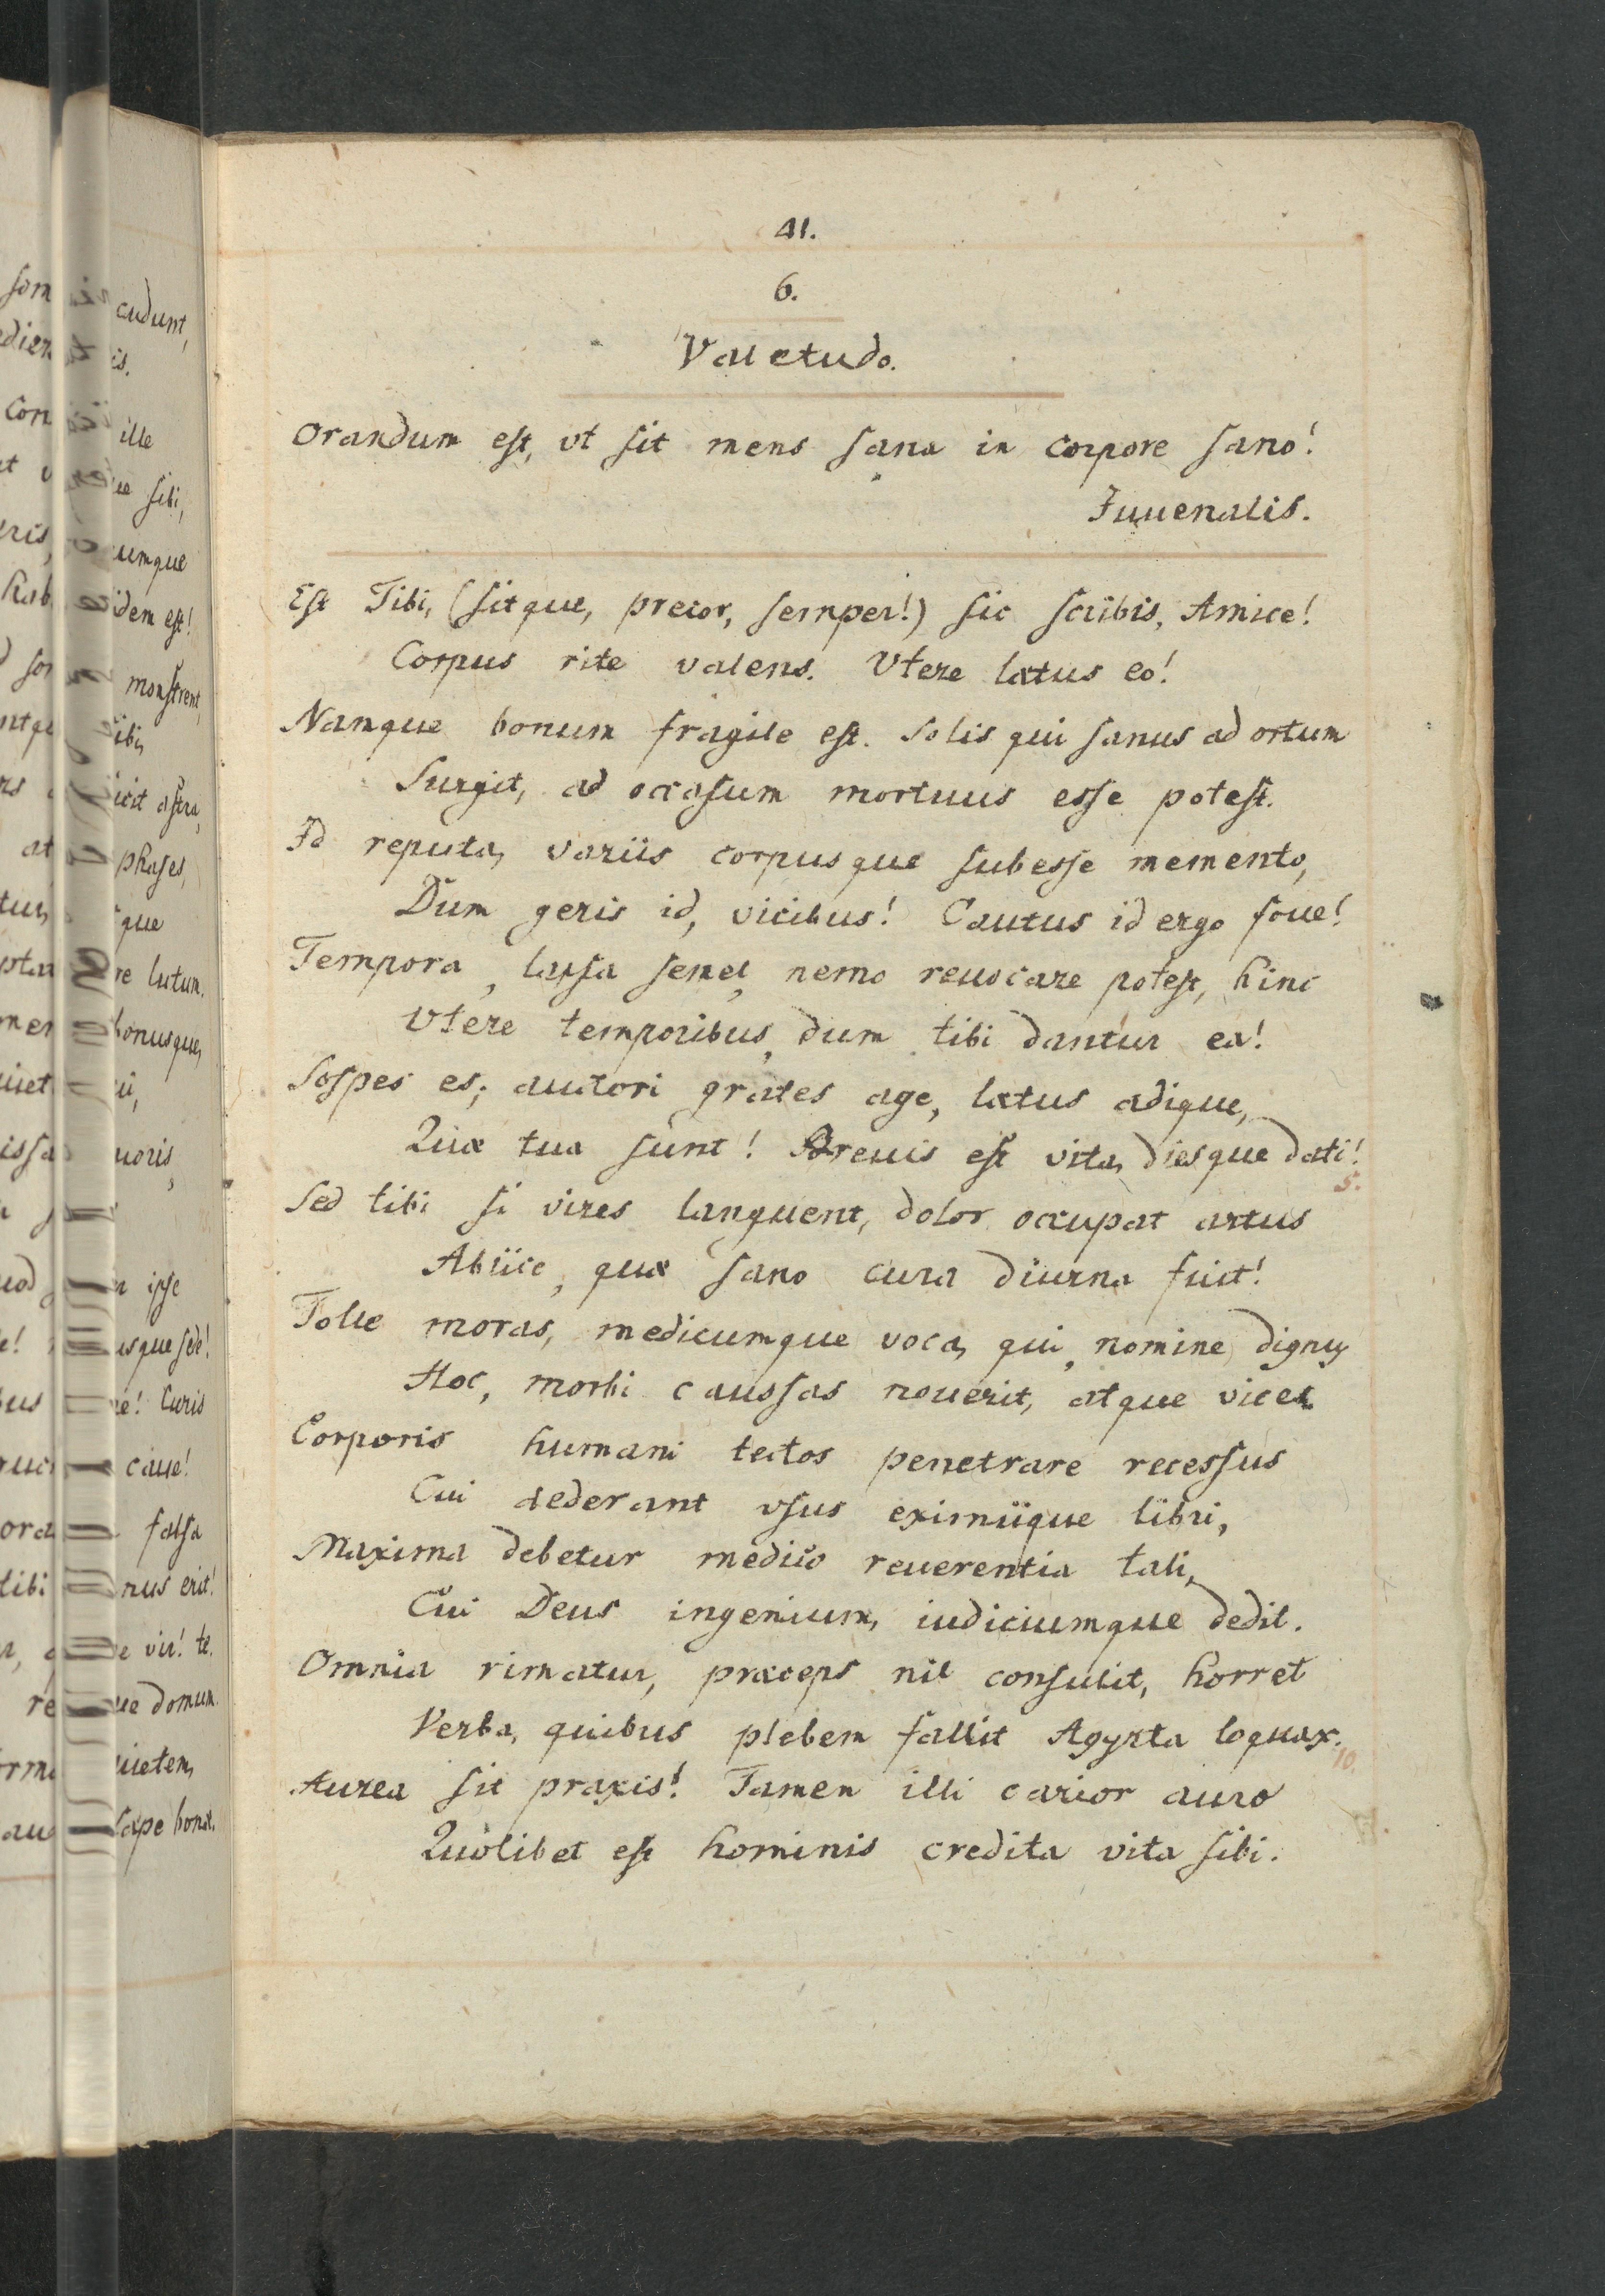 41.
6.
Valetudo.
Orandum est, vt sit mens sana in corpore sano!
Iuuenalis.
Est Tibi, (sitque, precor, semper!) sic scribis, Amice!
Corpus rite valens. Vtere lætus eo!
Namque bonum fragile est. Solis qui sanus ad ortum
Surgit, ad occasum mortuus esse potest.
Id reputa, variis corpusque subesse memento,
Dum geris id, vicibus! Cautus id ergo foue!
Tempora, lapsa semel, nemo reuocare potest, hinc
Vtere temporibus, dum tibi dantur ea!
Sospes es; autori grates age, lætus adique,
Quæ tua sunt! Breuis est vita, diesque dati!
5.
Sed tibi si vires languent, dolor occupat artus
Abiice, quæ sano cura diurna fuit!
Tolle moras, medicumque voca, qui, nomine dignus
Hoc, morbi caussas nouerit, atque vices
Corporis humani tectos penetrare recessus
Cui dederant vsus eximiique libri,
Maxima debetur medico reuerentia tali,
Cui Deus ingenium, iudiciumque dedit.
Omnia rimatur, præceps nil consulit, horret
Verba, quibus plebem fallit Agyrta loquax.
10.
Aurea sit praxis! Tamen illi carior auro
Quolibet est hominis credita vita sibi.
cudunt,
is.
ille
sibi,
umque
idem est!
monstrent,
ibi,
icit astra,
phases,
que
re lutum.
bonusque,
uoris,
ipse
usque sede!
Curis
caue!
falsa
nus erit!
vir! te.
ue domum.
uietem,
sæpe bonæ.